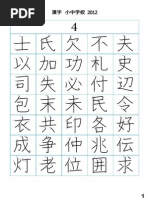 漢字 小中学校 2012
4
士氏欠不夫
以加功札史
司失必付辺
包末未民令
衣共印各好
成争仲兆伝
灯老位囲求
1